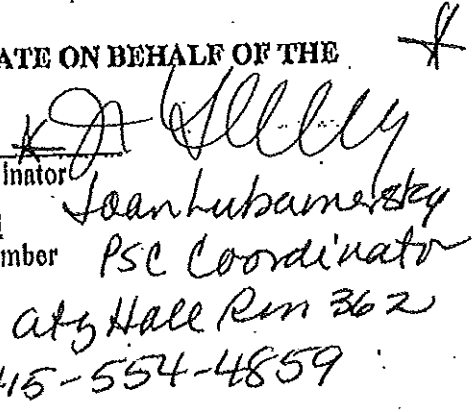 ATE ON BEHALF OF THE
inator
Joan Lubamersky
mber PSC Coordinator
City Hall Rm 362
415-554-4859